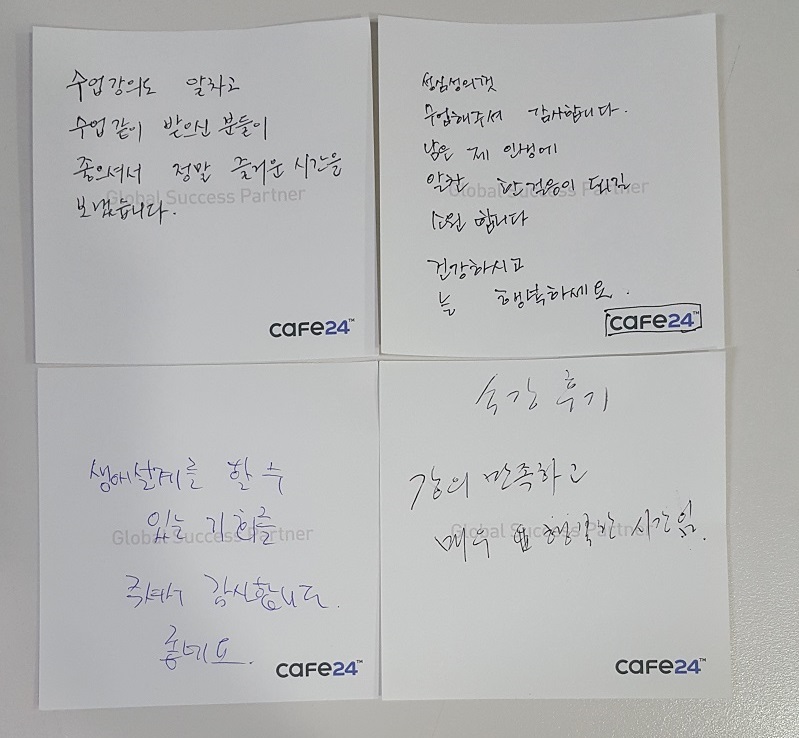 수업강의도 알차고
수업 같이 받으신 분들이
좋으셔서 정말 즐거운 시간을
Global Success Partner
보냈습니다.
cafe24™
성심성의껏
수업해주셔서 감사합니다.
남은 제 인생에
알찬 한 걸음이 되길
Global Success Partner
소원 합니다
건강하시고
늘 행복하세요.
cafe24™
생애설계를 할 수
있는 기회를
Global Success Partner
주셔서 감사합니다.
좋네요.
cafe24™
수강 후기
강의 만족하고
매우 행복한 시간임.
Global Success Partner
cafe24™